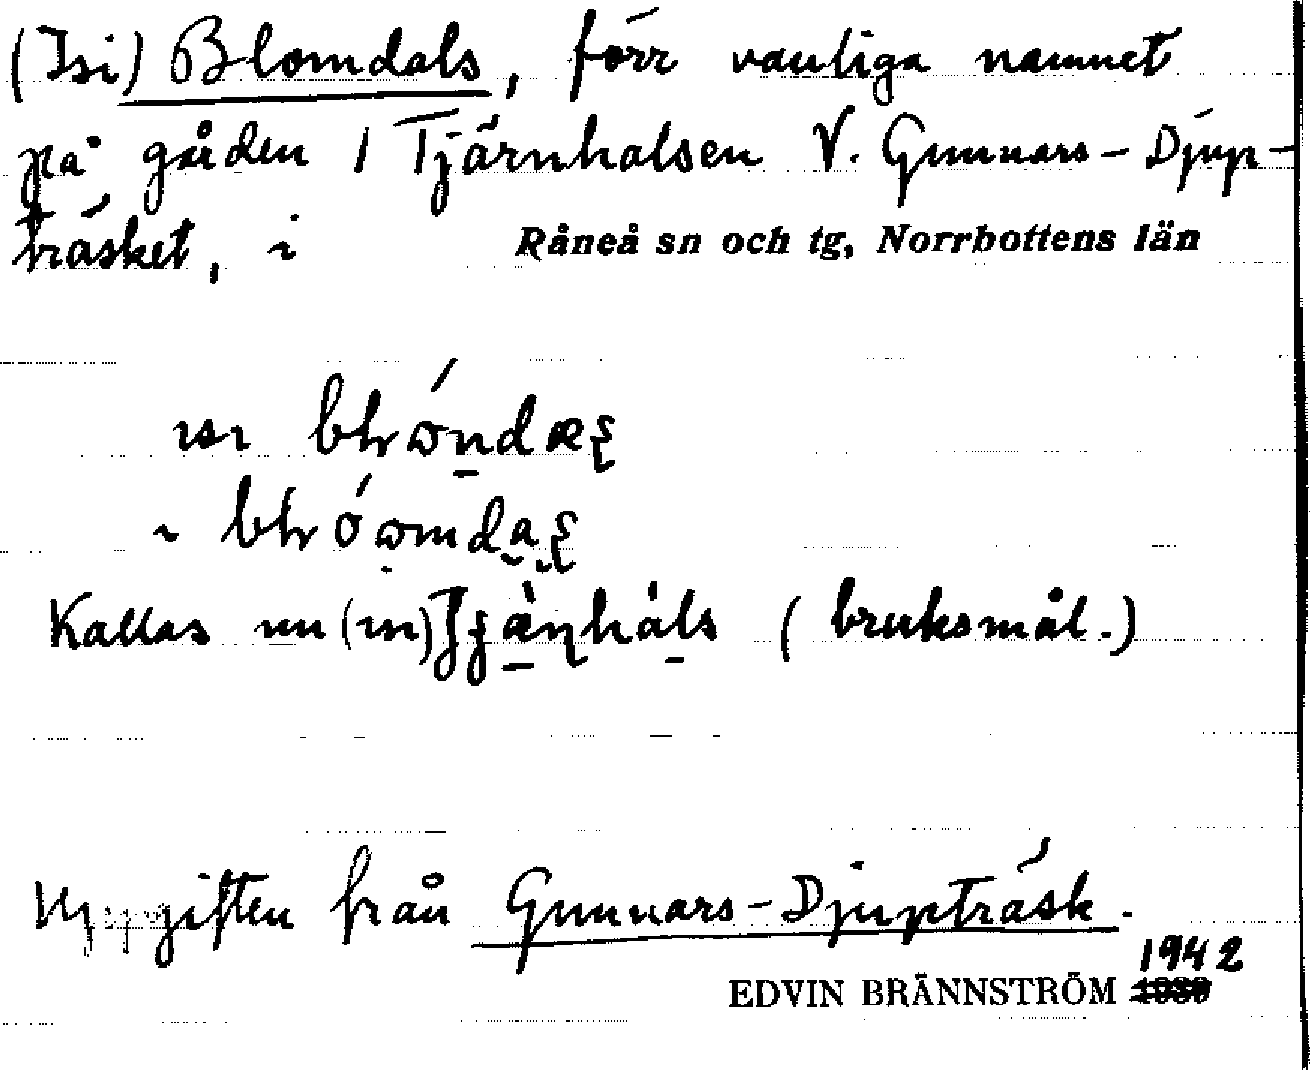 (Isi) Blomdals, förr vanliga namnet
på gården 1 Tjärnhalsen V. Gunnars-Djup-
träsket, i Råneå sn och tg, Norrbottens län
ısı
ı
Kallas nu (ın) (bruksmål.)
Uppgiften från Gunnars-Djupträsk.
1942
EDVIN BRÄNNSTRÖM